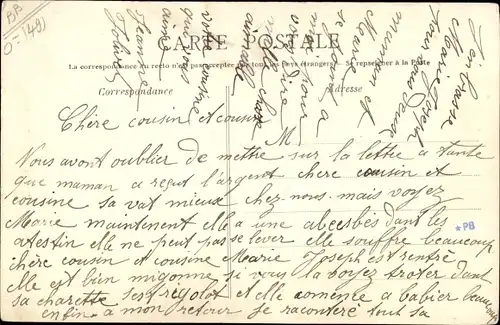 BB
0 = (49)
CARTE POSTALE
La correspondance au recto n'est pas acceptée par tous les pays étrangers. Se renseigner à la Poste
Correspondance
Adresse
M
Chère cousin et cousine
Nous avont oublier de mettre sur la lettre a tante
que maman a reçut l'argent chère cousin et
cousine sa vat mieux chez nous mais voyez
Marie maintenent elle a une abcesbès dant les
intestin elle ne peut pas se lever elle souffre beaucoup
chère cousin et cousine Marie Joseph est rentré
elle est bien migonne si vous la voyez troter dant
sa charette s'est rigolot et elle comence a babier beaucoup
enfin a mon retour je raconteré tout sa
*PB
J'en
Marie Joseph
tous
maman et
Marie
se
a
jour
dire
chose
votre cousine
qui vous
aime